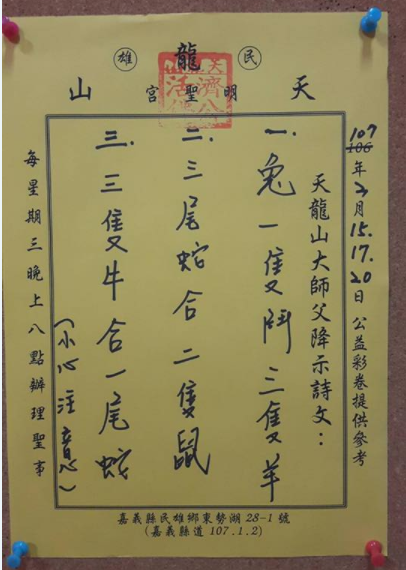 民龍雄
天明聖宮山
濟公
活佛
107年2月15.17.20日公益彩卷提供參考
天龍山大師父降示詩文：
一.兔一隻鬥三隻羊
二.三尾蛇合二隻鼠
三.三隻牛合一尾蛇
(小心注意)
每星期三晚上八點辦理聖事
嘉義縣民雄鄉東勢湖28-1號
(嘉義縣道107.1.2)